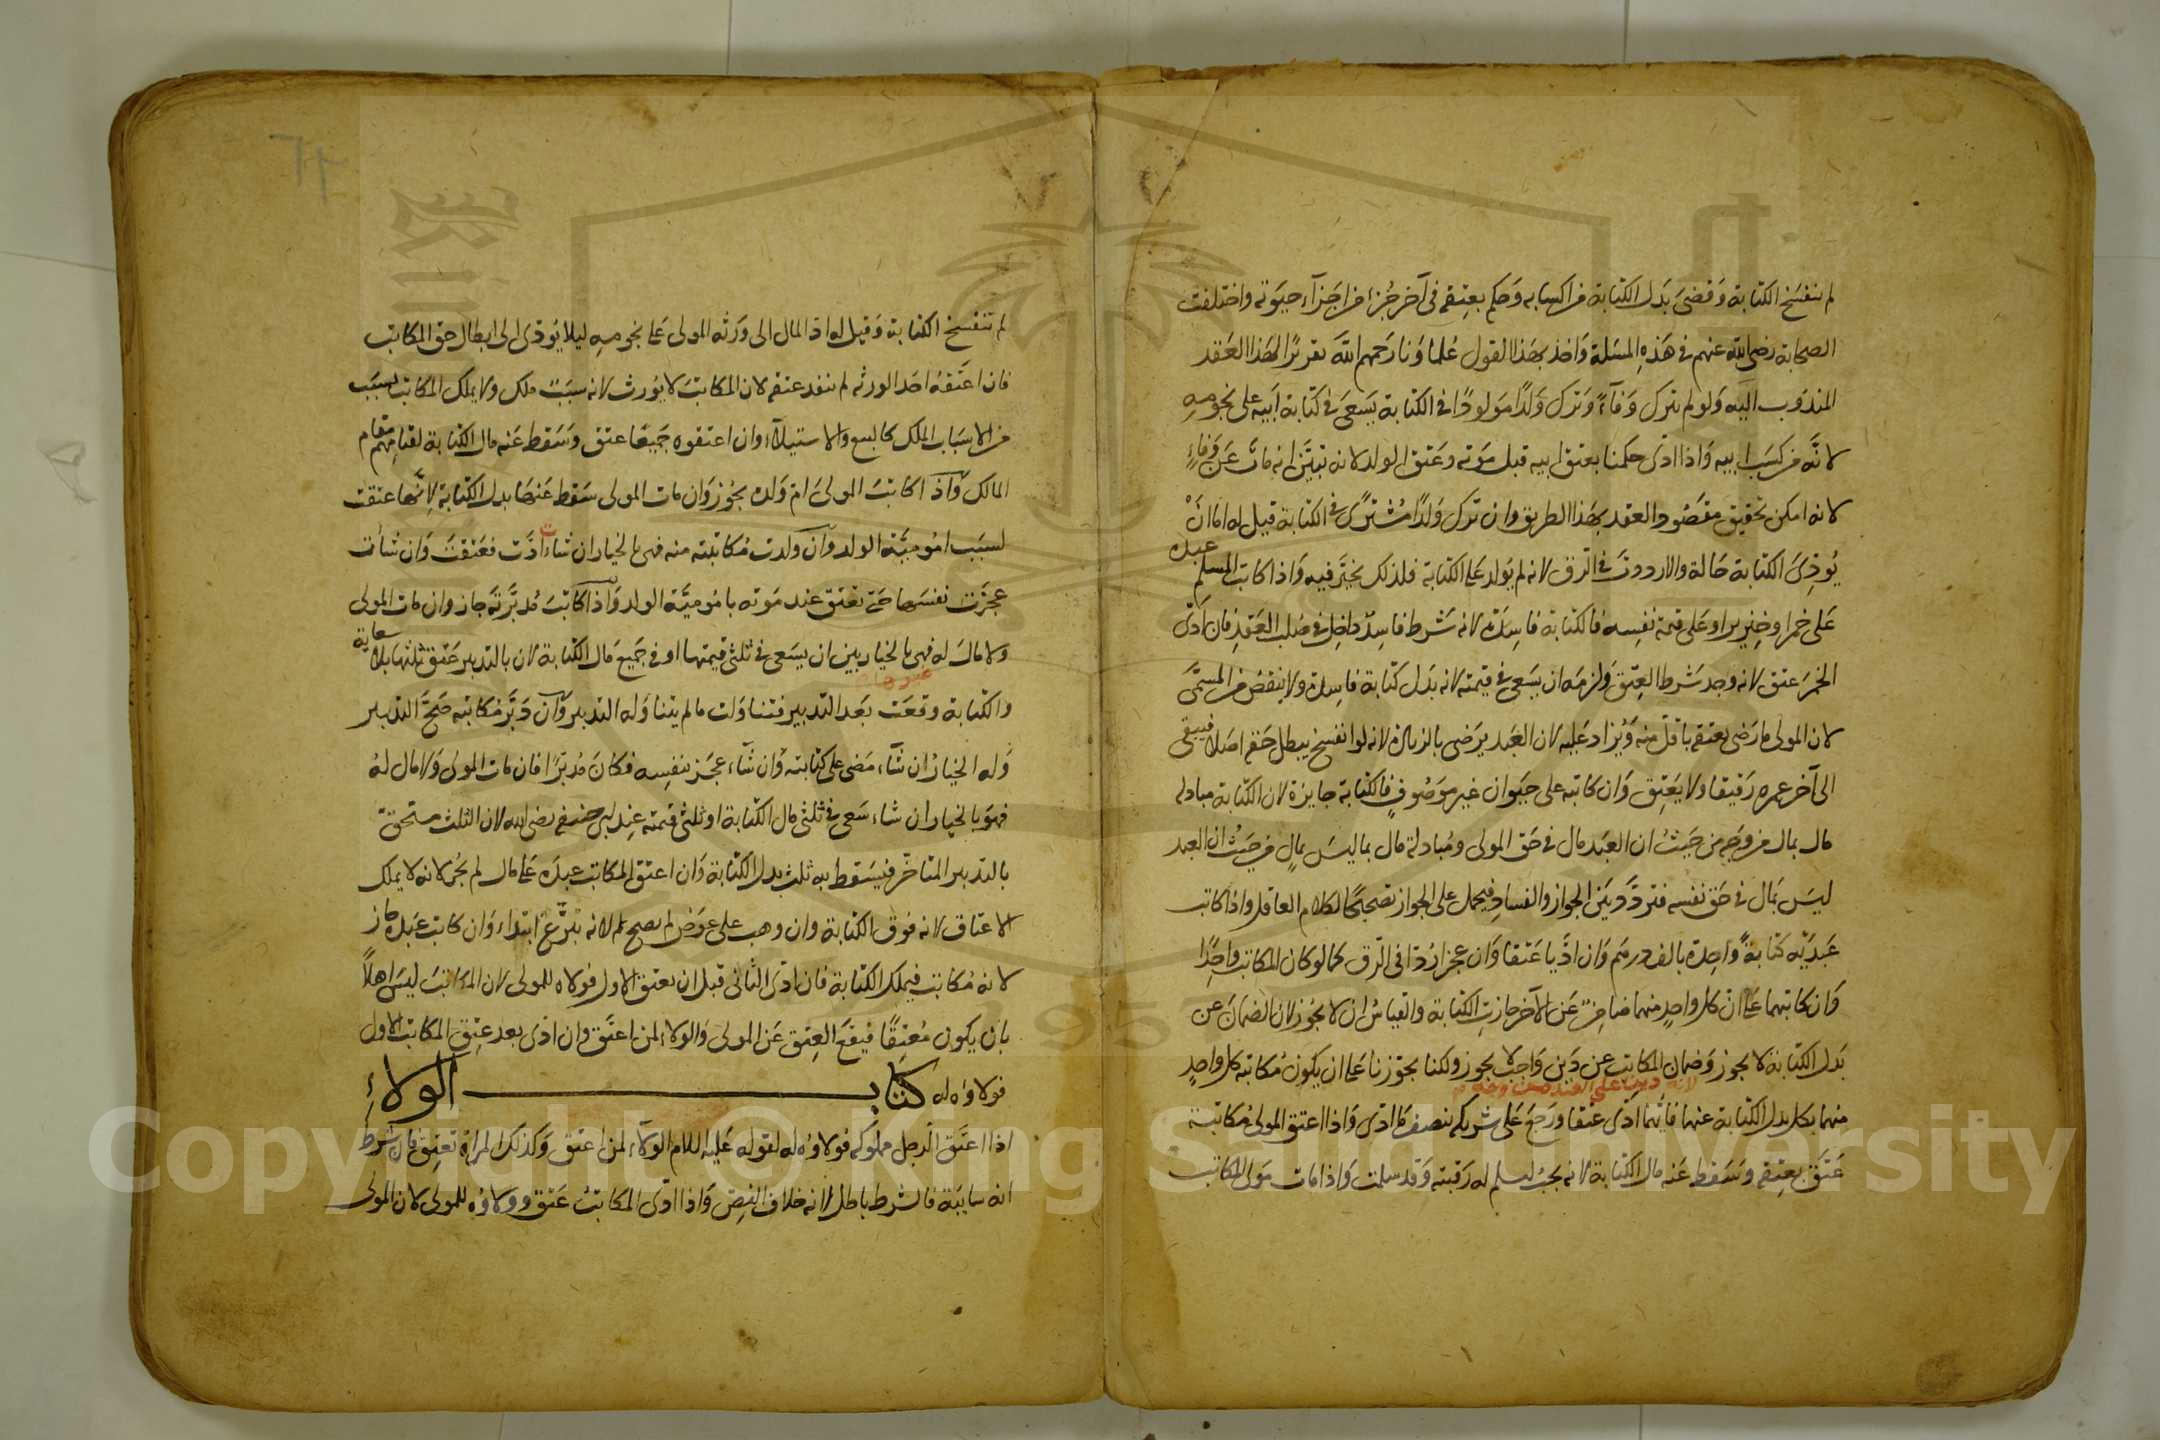 لم ينفسخ الكتابة وقضى بدل الكتابة من اكسابه وحكم بعتقه فى آخر جزء من اجزآء حيوته واختلفت
الصحابة رضى الله عنهم فى هذه المسئلة واخذ بهذا القول علماؤنا رحمهم الله تقريرًا لهذا العقد
المندوب اليه ولو لم يترك وفآءً وترك ولدًا مولودًا فى الكتابة يسعى فى كتابة ابيه على نجومه
لانه من كسب ابيه واذا ادى حكمنا بعتق ابيه قبل موته وعتق الولد لانه تبيّن انه مات عن وفاءٍ
لانه امكن تحقيق مقصود العقد بهذا الطريق وان ترك ولدًا مشترى فى الكتابة قيل له اما انْ
يُودِىَ الكتابة حالة والا رددت فى الرق لانه لم يولد على الكتابة فلذلك يخيّر فيه واذا كاتب المسلم عبده
على خمر او خنزير او على قيمة نفسه فالكتابة فاسدة لانه شرط فاسدٌ داخل فى صلب العقد فان ادّى
الخمر عتق لانه وجد شرط العتق ولزمه ان يسعى فى قيمته لانه بدل كتابة فاسدة ولا ينقص من المسمّى
لان المولى ما رضى بعتقه باقل منه ويزاد عليه لان العبد يرضى بالزيادة لانه لو انفسخ يبطل حقه اصلا فيبقى
الى آخر عمره رقيقا ولا يعتق وان كاتبه على حيوان غير موصُوفٍ فالكتابة جايزة لان الكتابة مبادلة
مال بمال من وجه من حيث ان العبد مال فى حق المولى ومبادلة مال بما ليس بمالٍ من حيث ان العبد
ليس بمال فى حق نفسه فتردّد بين الجواز والفساد فيحمل على الجواز تصحيحًا لكلام العاقل واذا كاتب
عبديه كتابةً واحدة بالف درهم وان اديا عتقا وان عجزا رُدّا فى الرق كما لو كان المكاتب واحِدًا
وان كاتبهما على ان كل واحدٍ منهما ضامن عن الآخر جازت الكتابة والقياس ان لا يجوز لان الضمان عن
بدل الكتابة لا يجوز وضمان المكاتب عن دين واجب لا يجوز ولكنا نجوّزنا على ان يكون مكاتبه كل واحدٍ
لانه دين على العبد من وجه
منهما بكل بدل الكتابة عنهما فايّهما ادّى عتقا ورجع على شريكه بنصف ما ادّى واذا اعتق المولى مكاتبه
عتق بعتقه وسقط عنه مال الكتابة لانه يجب ليسلم له رقبته وقد سلمت واذا مات مولى المكاتب
٦٣
لم تنفسخ الكتابة وقيل له ادّ المال الى ورثه المولى على نجومه ليلا يُودّى الى ابطال حق المكاتب
فان اعتقه احد الورثه لم ينفد عتقه لان المكاتب لا يورث لانه سبب ملك ولا يملك المكاتب بسبب
من الاسباب الملك كالبيع والاستيلآء وان اعتقوه جميعًا عتق وسقط عنه مال الكتابة لقيامهم مقام
المالك واذا كاتب المولى ام ولده يجوز وان مات المولى سقط عنها بدل الكتابة لانّها عتقت
لسبب امُوميّة الولد وان ولدت مُكاتبته منه فهى بالخيار ان شاءت ادّت فعتقت وان شأت
عجزت نفسها حتى تعتق عند موته بامُوميّة الولد واذا كاتب مُدبّرته جاز وان مات المولى
ولا مال له فهى بالخيار بين ان يسعى فى ثلثى قيمتها او فى جميع مال الكتابة لان بالتدبير عتق ثلثها بلا سعاية
غيرها
والكتابة وقعت بعد التدبير فتناولت ما لم يتناوله التدبير وان دبّر مكاتبه صحّ التدبير
وله الخيار ان شآء مضى على كتابته وان شآء عجز بنفسه فكان مدبّرا فان مات المولى ولا مال لهُ
فهو بالخيار ان شاء سعى فى ثلثى مال الكتابة او ثلثى قيمته عند ابى حنيفه رضى الله لان الثلث مستحق
بالتدبير المتاخر فيسقط به ثلث بدل الكتابة وان اعتق المكاتب عبده على مال لم يجز لانه لا يملك
الاعتاق لانه فوق الكتابة وان وهب على عوض لم يصح لانه تبرّع ابتداء وان كاتب عبده جاز
لانه مُكاتب فيملك الكتابة فان ادّى الثانى قبل ان يعتق الاول فولاه للمولى لان المكاتب ليس اهلاً
بان يكون معتقًا فيقع العتق عن المولى والولاء لمن اعتق وان ادى بعد عتق المكاتب الاول
فولاؤه له كتاب الولاءِ
اذا اعتق الرجل مملوكه فولاؤه له لقوله عليه السلام الولآء لمن اعتق وكذلك المراة تعتق فان شرط
انه سايبة فالشرط باطل لانه خلاف النص واذا ادّى المكاتب عتق وولاؤه للمولى لان المولى